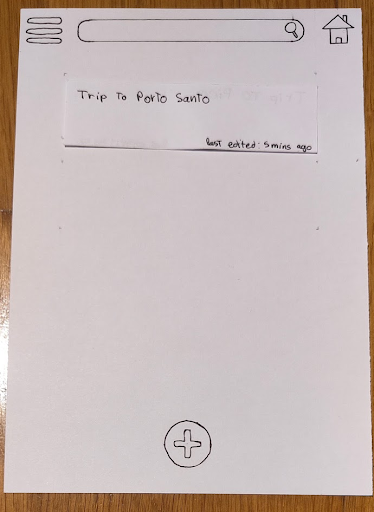 Trip to Porto Santo
last edited: 5 mins ago